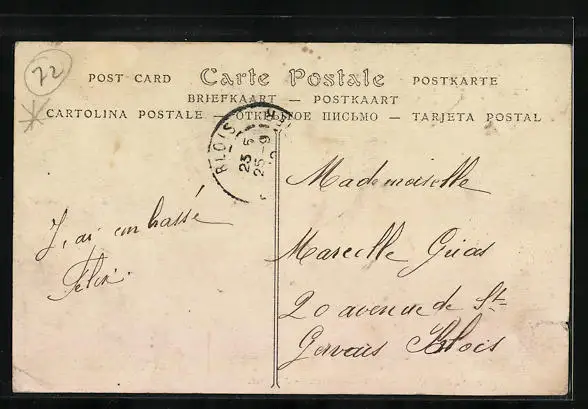 72
POST CARD Carte Postale POSTKARTE
BRIEFKAART — POSTKAART
CARTOLINA POSTALE — ОТКРЫТОЕ ПИСЬМО — TARJETA POSTAL
BLOIS
23 5
25 -9
Mademoiselle
J'ai embrassé
Félix.
Marcelle
20 avenue de St
Gervais Blois